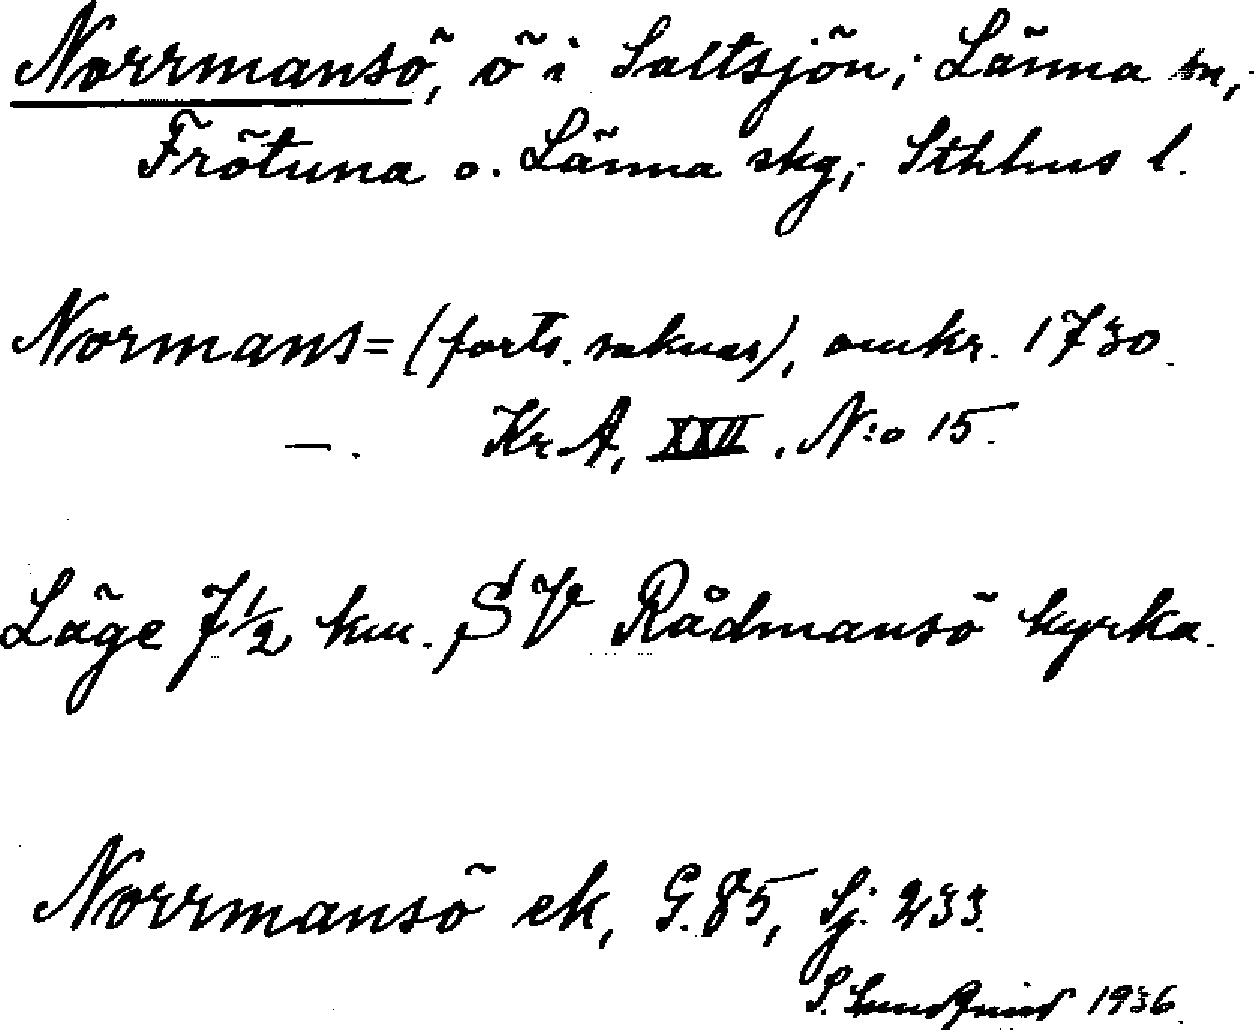 Norrmansö, ö i Saltsjön; Länna sn,
Frötuna o. Länna skg; Sthlms l.
Normans= (forts. saknas), omkr. 1730.
—. KrA, XXII. N:o 15.
Läge 7 1/2 km. SV Rådmansö kyrka.
Norrmansö ek, G.85, Sj. 233.
S. Lundqvist 1936.